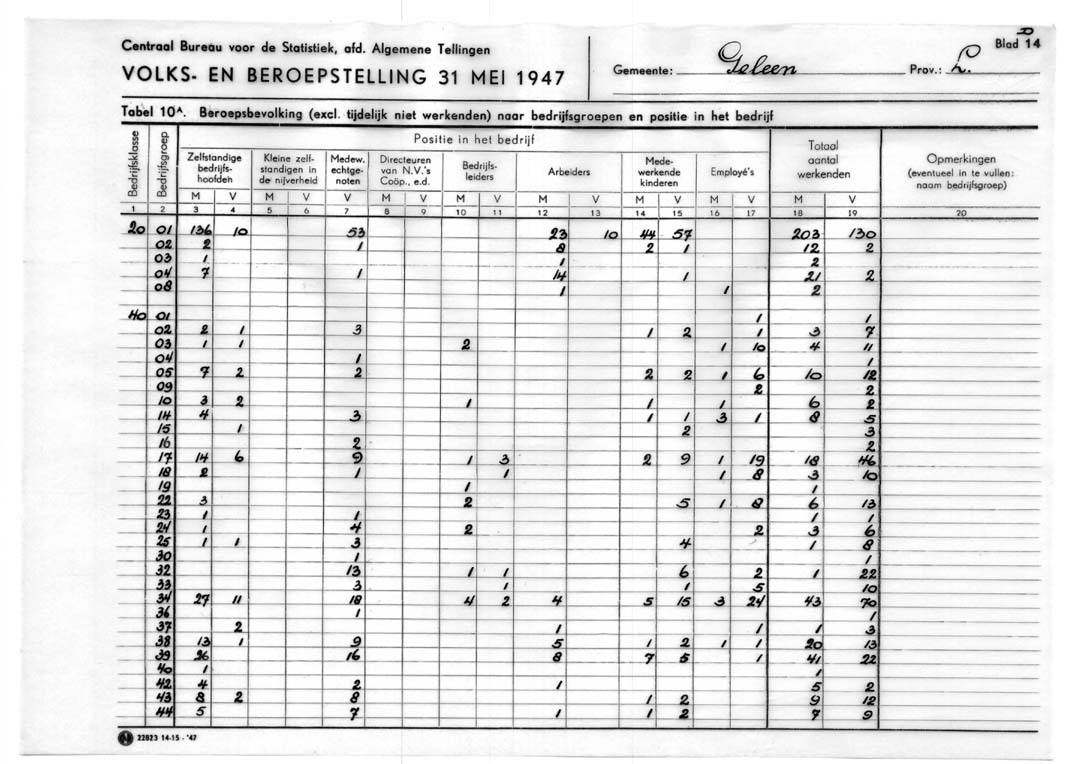 Centraal Bureau voor de Statistiek, afd. Algemene Tellingen
VOLKS- EN BEROEPSTELLING 31 MEI 1947
Gemeente: Geleen Prov.: L.
Blad 14
Tabel 10A. Beroepsbevolking (excl. tijdelijk niet werkenden) naar bedrijfsgroepen en positie in het bedrijf
Bedrijfsklasse Bedrijfsgroep Positie in het bedrijf Totaal aantal werkenden Opmerkingen (eventueel in te vullen: naam bedrijfsgroep)
Zelfstandige bedrijfs-hoofden Kleine zelf-standigen in de nijverheid Medew. echtge-noten Directeuren van N.V.'s Coöp., e.d. Bedrijfs-leiders Arbeiders Mede-werkende kinderen Employé's
M V M V V M V M V M V M V M V M V
1 2 3 4 5 6 7 8 9 10 11 12 13 14 15 16 17 18 19 20
20 01 136 10 53 23 10 44 57 203 130
02 2 1 8 2 1 12 2
03 1 1 2
04 7 1 14 1 21 2
08 1 1 2
40 01 1 1
02 2 1 3 1 2 1 3 7
03 1 1 2 1 10 4 11
04 1 1
05 7 2 2 2 2 1 6 10 12
09 2 2
10 3 2 1 1 1 6 2
14 4 3 1 1 3 1 8 5
15 1 2 3
16 2 2
17 14 6 9 1 3 2 9 1 19 18 46
18 2 1 1 1 8 3 10
19 1 1
22 3 2 5 1 8 6 13
23 1 1 1 1
24 1 4 2 2 3 6
25 1 1 3 4 1 8
30 1 1
32 13 1 1 6 2 1 22
33 3 1 1 5 10
34 27 11 18 4 2 4 5 15 3 24 43 70
36 1 1
37 2 1 1 1 3
38 13 1 9 5 1 2 1 1 20 13
39 26 16 8 7 5 1 41 22
40 1 1
42 4 2 1 5 2
43 8 2 8 1 2 9 12
44 5 7 1 1 2 7 9
22823 14-15 - '47